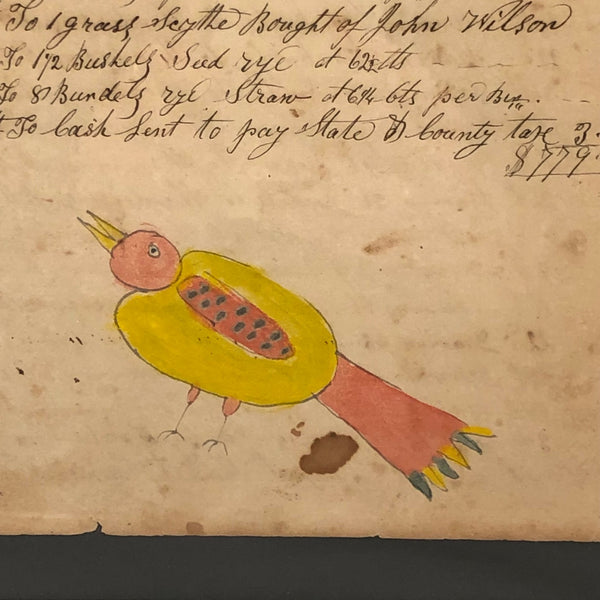 To 1 grass Scythe Bought of John Wilson
To 1 1/2 Bushels Seed rye at 62 1/2 cts
To 8 Bundels rye Straw at 6 1/4 cts per Bu..
To Cash Sent to pay State & County taxe 3
$779